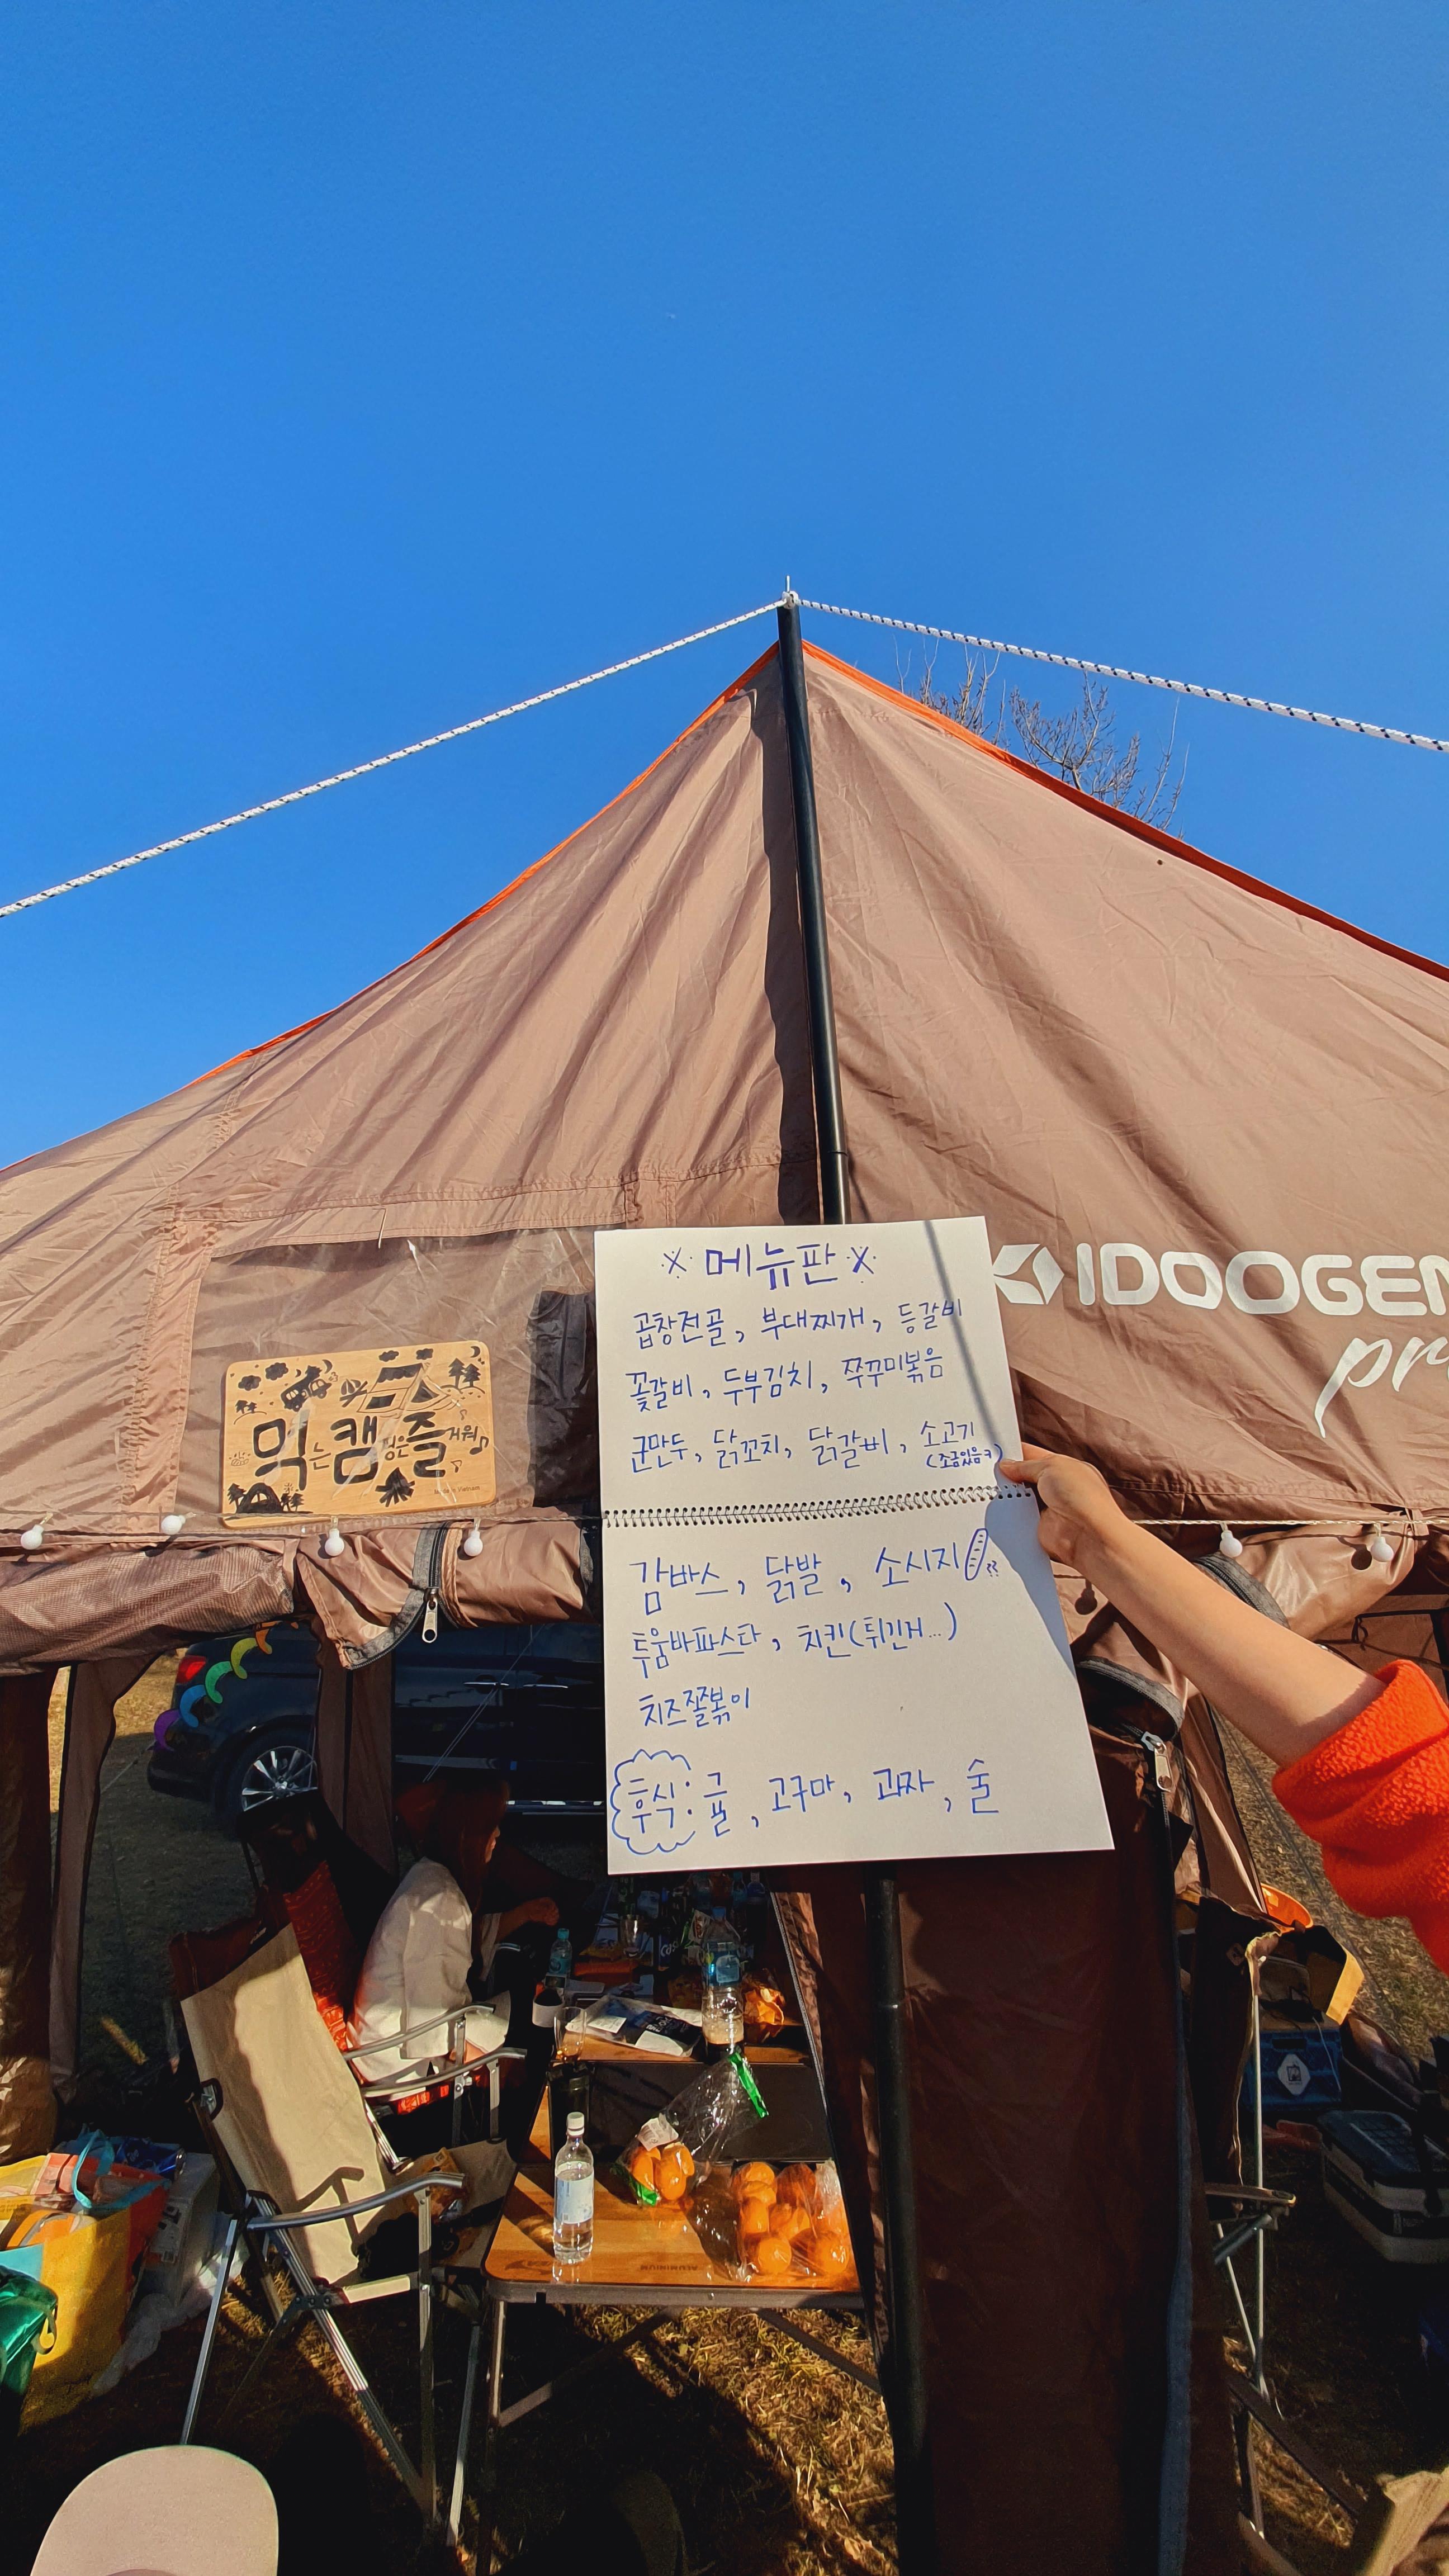 IDOOGEN
pr
※ 메뉴판 ※
곱창전골, 부대찌개, 등갈비
꽃갈비, 두부김치, 쭈꾸미볶음
군만두, 닭꼬치, 닭갈비, 소고기
(조금있음ㅋ)
먹는캠핑은즐거워♪
Made in Vietnam
감바스, 닭발, 소시지
투움바파스타, 치킨(튀긴거...)
치즈쫄볶이
후식: 귤, 고구마, 과자, 술
ALUMINIUM